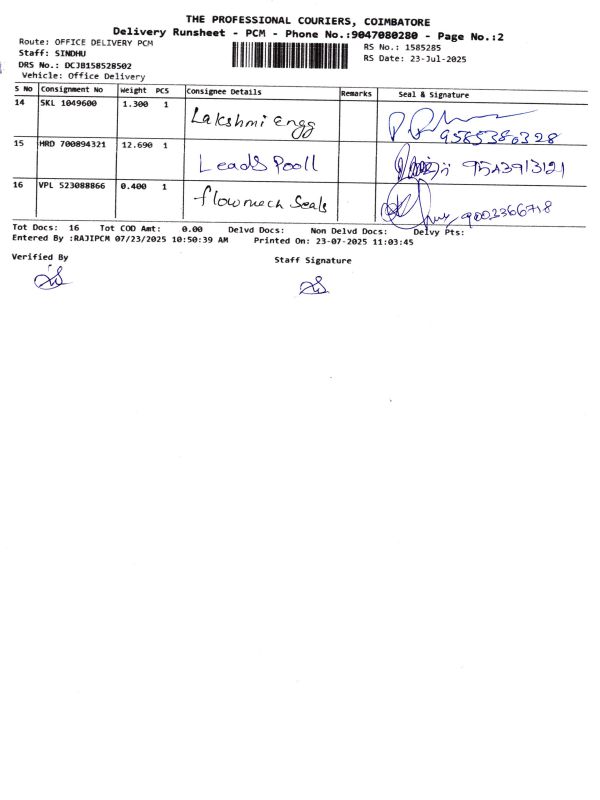 THE PROFESSIONAL COURIERS, COIMBATORE
Delivery Runsheet - PCM - Phone No.:9047080280 - Page No.:2
Route: OFFICE DELIVERY PCM
Staff: SINDHU
DRS No.: DCJB158528502
Vehicle: Office Delivery
RS No.: 1585285
RS Date: 23-Jul-2025
S No Consignment No Weight PCS Consignee Details Remarks Seal & Signature
14 SKL 1049600 1.300 1 Lakshmi Engg 9585386328
15 MRD 700894321 12.690 1 Leads Pooll 9543913121
16 VPL 523088866 0.400 1 flowmech Seals 9002366718
Tot Docs: 16 Tot COD Amt: 0.00 Delvd Docs: Non Delvd Docs: Delvy Pts:
Entered By :RAJIPCM 07/23/2025 10:50:39 AM Printed On: 23-07-2025 11:03:45
Verified By Staff Signature